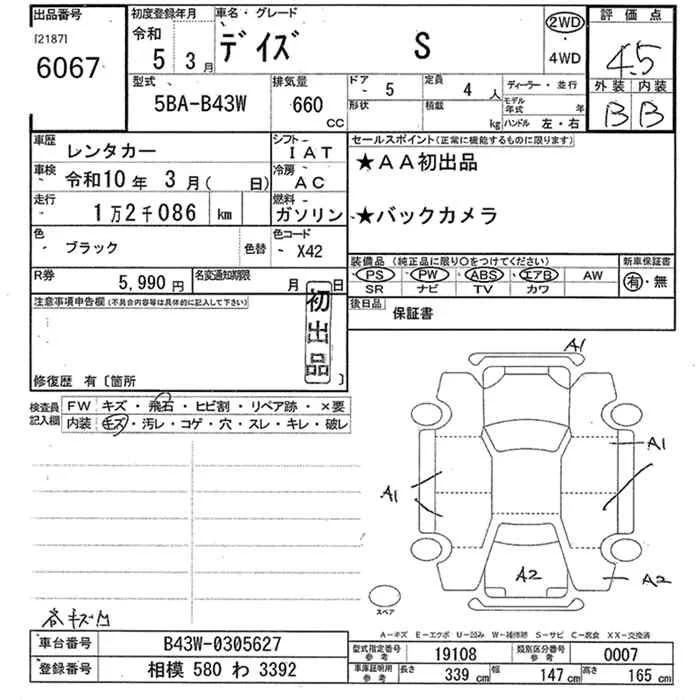 出品番号
[2187]
6067
初度登録年月
令和
5 3月
車名・グレード
デイズ S
2WD
・
4WD
評価点
4.5
外装 内装
B B
型式
5BA-B43W
排気量
660
CC
ドア 5
形状
定員 4 人
積載 kg
ディーラー・並行
モデル年式 年
ハンドル 左・右
車歴 レンタカー
シフト IAT
車検 令和10年 3月( 日)
冷房 AC
走行 1万2千086 km
燃料 ガソリン
色 ブラック
色替
色コード X42
セールスポイント(正常に機能するものに限ります)
★AA初出品
★バックカメラ
装備品(純正品に限り○をつけてください)
PS PW ABS エアB AW
SR ナビ TV カワ
新車保証書
有・無
R券 5,990円
名変通知期限 月 日
後日品 保証書
注意事項申告欄(不具合内容等は具体的に記入して下さい)
初出品
修復歴 有〔箇所 〕
検査員記入欄
FW キズ・飛石・ヒビ割・リペア跡・×要
内装 キズ・汚レ・コゲ・穴・スレ・キレ・破レ
A1
A1
A1
A2
A2
スペア
A-キズ E-エクボ U-凹み W-補修跡 S-サビ C-腐食 XX-交換済
車台番号 B43W-0305627
登録番号 相模 580 わ 3392
型式指定番号 参考 19108
類別区分番号 参考 0007
車庫証明用 参考 長さ 339 cm 幅 147 cm 高さ 165 cm